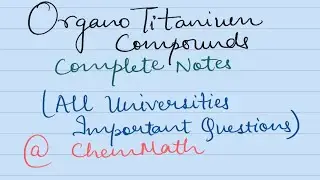 Organo Titanium
Compounds
Complete Notes
(All Universities
Important Questions)
@ ChemMath